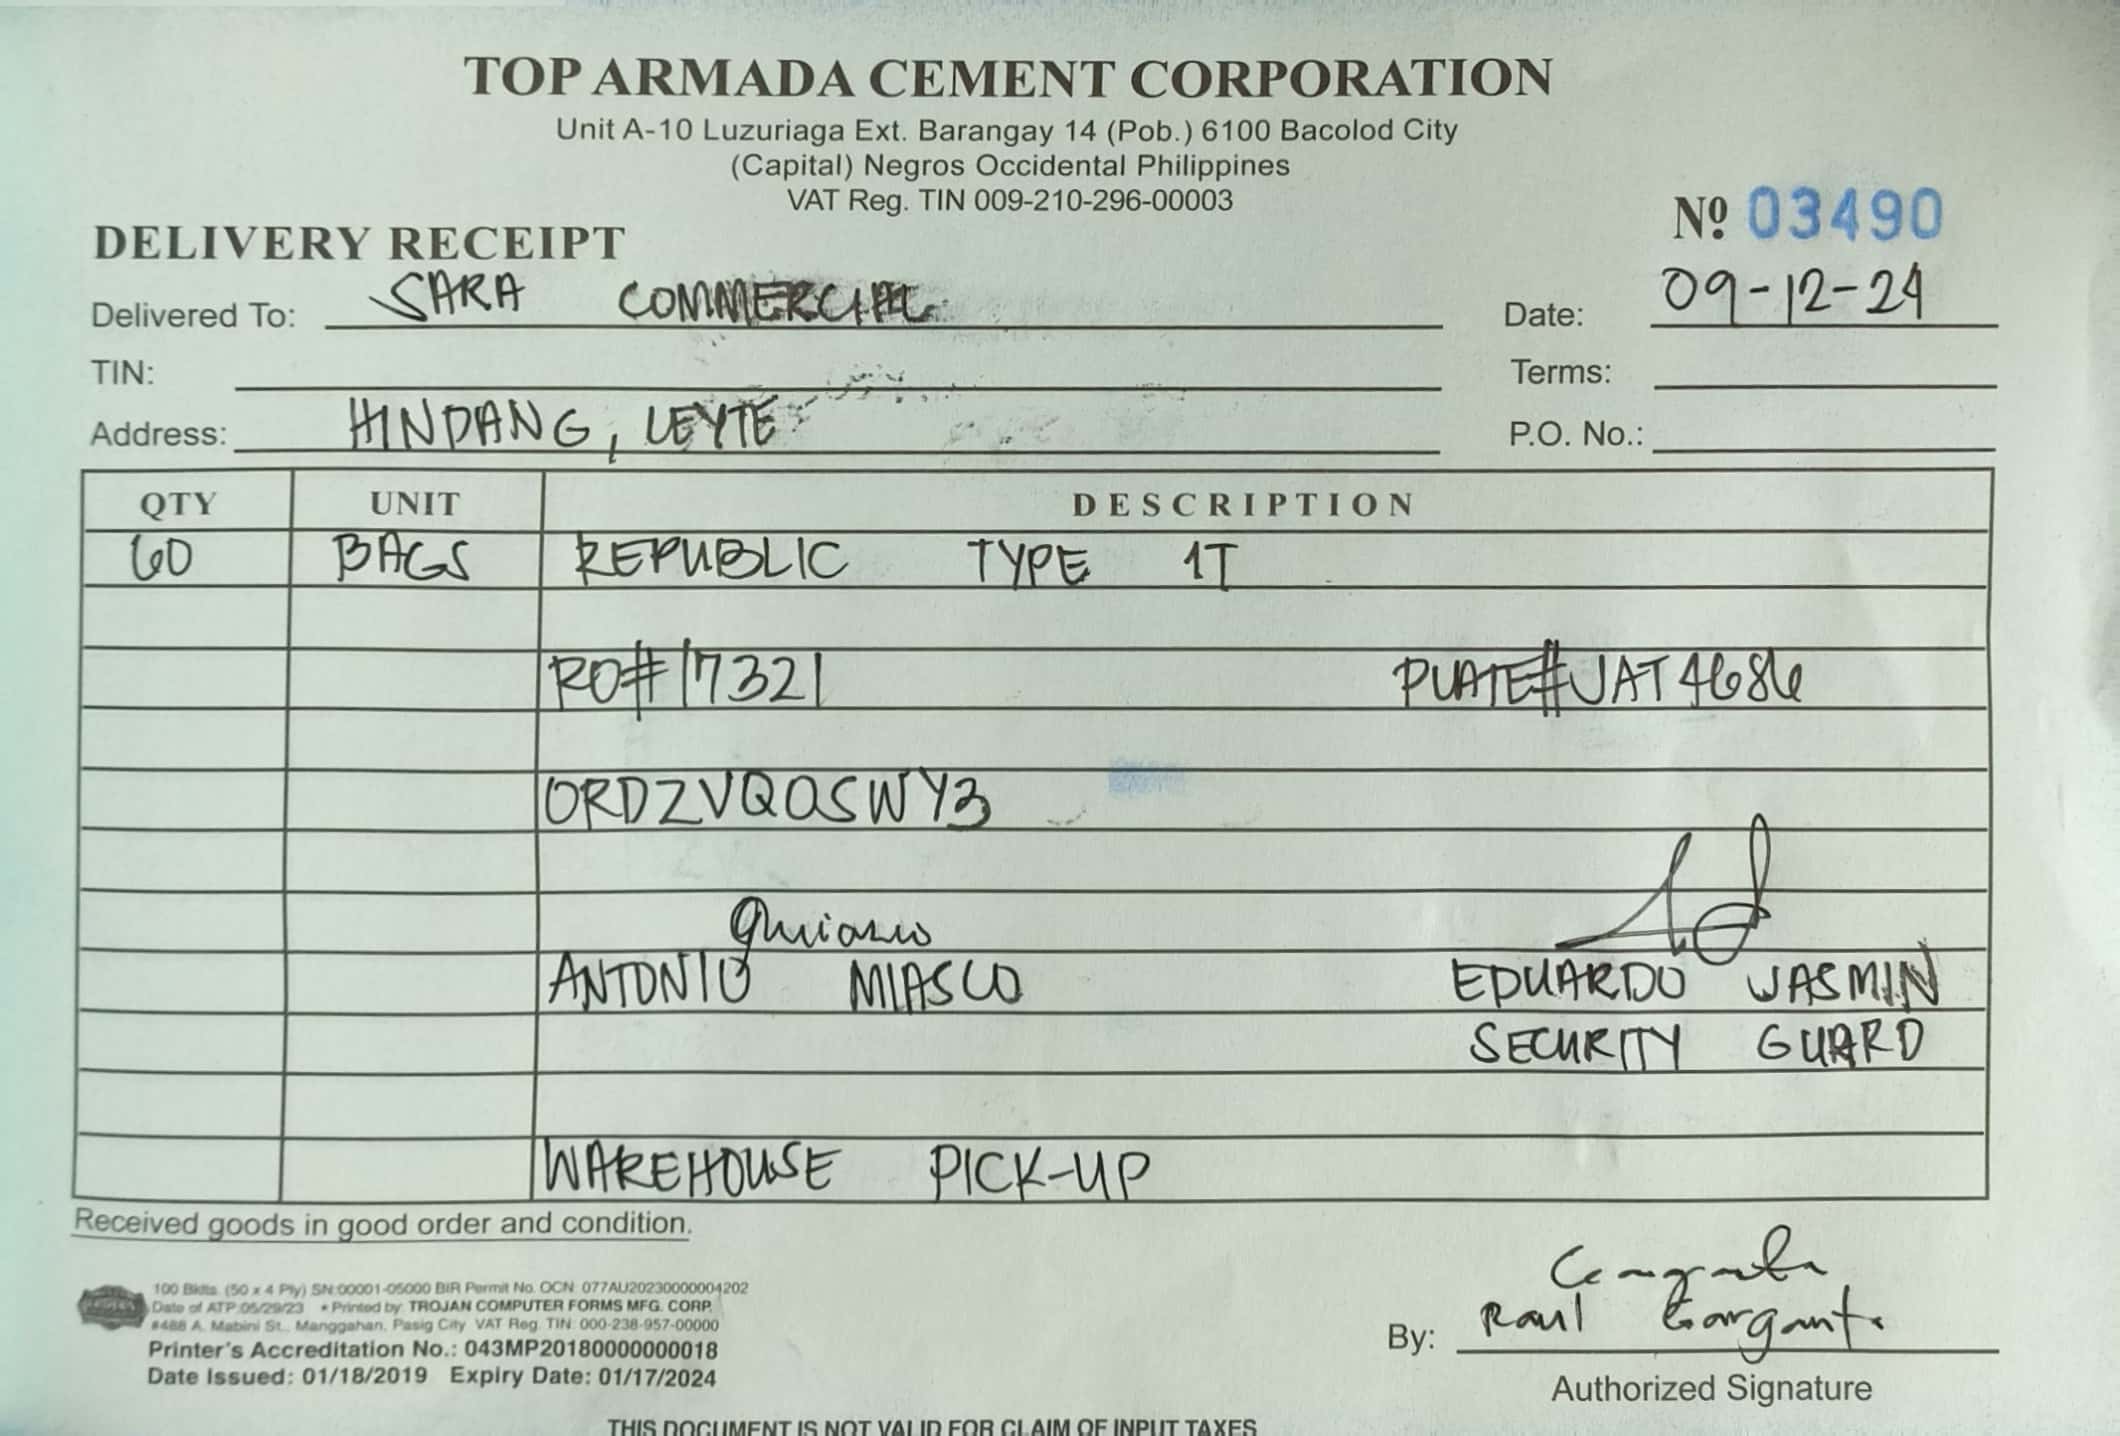 TOP ARMADA CEMENT CORPORATION
Unit A-10 Luzuriaga Ext. Barangay 14 (Pob.) 6100 Bacolod City
(Capital) Negros Occidental Philippines
VAT Reg. TIN 009-210-296-00003
№ 03490
DELIVERY RECEIPT
Delivered To: SARA COMMERCIAL Date: 09-12-24
TIN: Terms:
Address: HINDANG, LEYTE P.O. No.:
QTY UNIT DESCRIPTION
60 BAGS REPUBLIC TYPE 1T
RO#17321 PLATE#JAT4686
ORDZVQOSWY3
ANTONIO MIASCO EDUARDO JASMIN
SECURITY GUARD
WAREHOUSE PICK-UP
Received goods in good order and condition.
100 Bklts. (50 x 4 Ply) SN:00001-05000 BIR Permit No. OCN: 077AU20230000004202
Date of ATP:05/29/23 • Printed by: TROJAN COMPUTER FORMS MFG. CORP.
#488 A. Mabini St., Manggahan, Pasig City VAT Reg. TIN: 000-238-957-00000
Printer's Accreditation No.: 043MP20180000000018
Date Issued: 01/18/2019 Expiry Date: 01/17/2024
By: Raul
Authorized Signature
THIS DOCUMENT IS NOT VALID FOR CLAIM OF INPUT TAXES